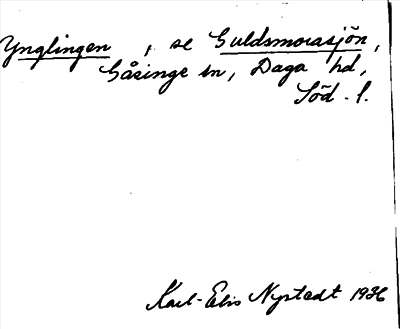 Ynglingen, se Guldsmorasjön,
Gåsinge sn, Daga hd,
Söd. l.
Karl-Elis Nystedt 1936